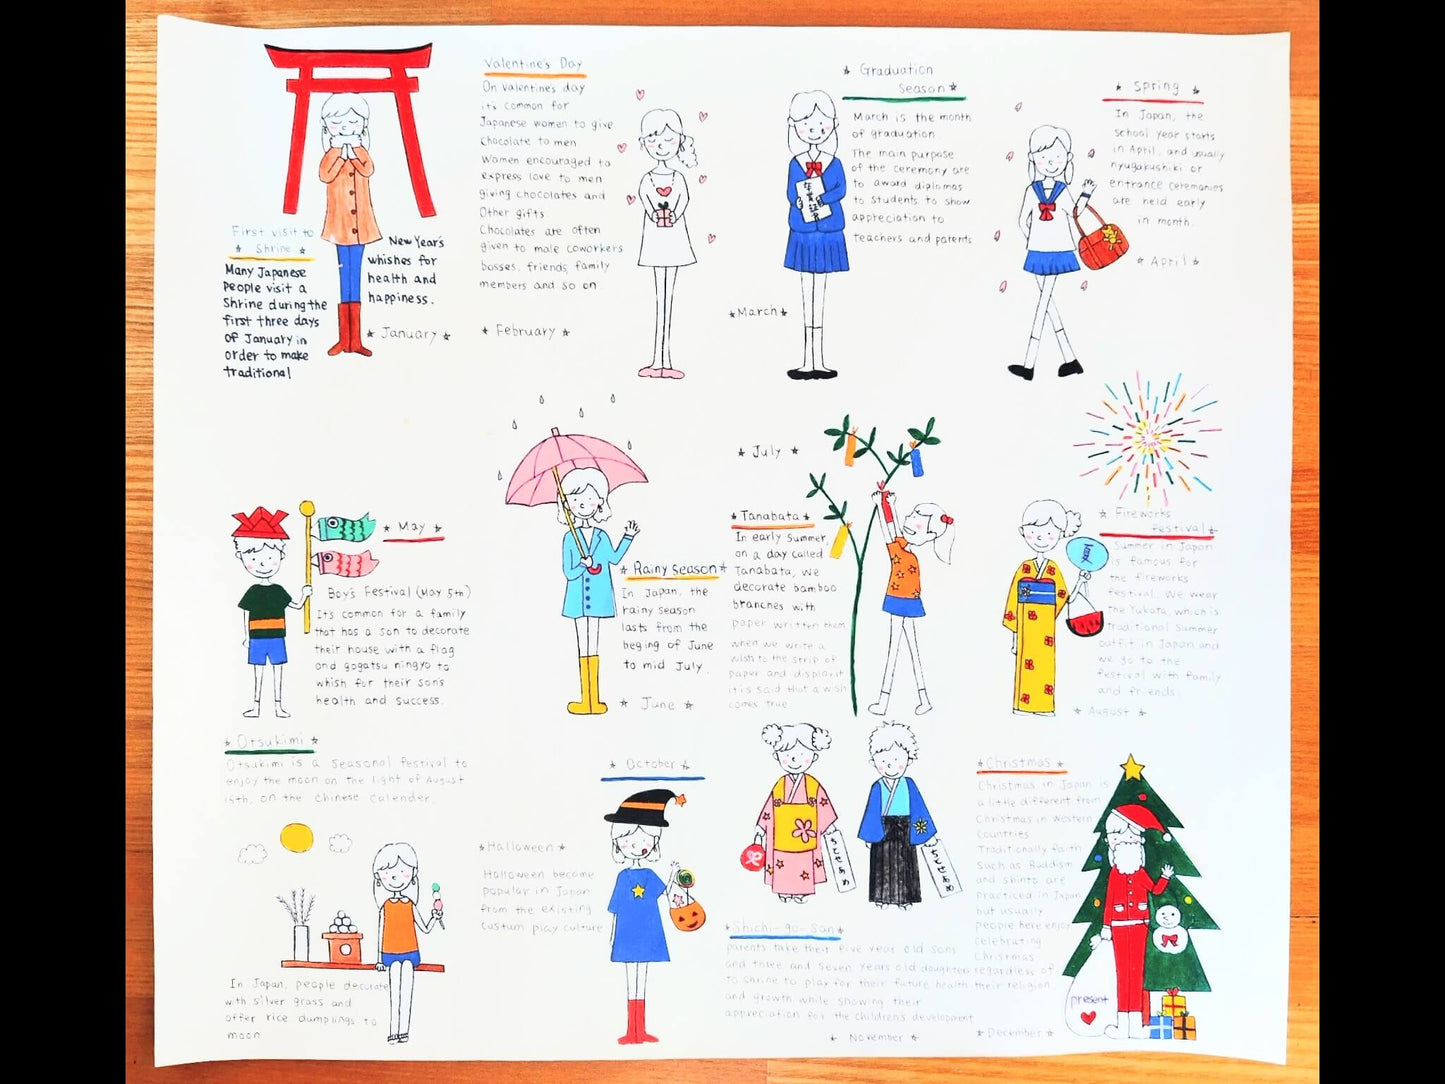 First visit to
Shrine
Many Japanese
people visit a
Shrine during the
first three days
of January in
order to make
traditional
New Year's
whishes for
health and
happiness.
January
Valentine's Day
On Valentine's day
it's common for
Japanese women to give
chocolate to men
Women encouraged to
express love to men
giving chocolates and
Other gifts.
Chocolates are often
given to male coworkers
bosses, friends, family
members and so on
February
Graduation
Season
March is the month
of graduation.
The main purpose
of the ceremony are
to award diplomas
to students to show
appreciation to
teachers and parents
卒業証書
March
Spring
In Japan, the
School year starts
in April, and usually
nyugakushiki or
entrance ceremonies
are held early
in month.
April
May
Boy's Festival (May 5th)
Its common for a family
that has a son to decorate
their house with a flag
and gogatsu ningyo to
whish for their son's
health and success.
Rainy Season
In Japan, the
rainy season
lasts from the
beging of June
to mid July.
June
July
Tanabata
In early Summer,
on a day called
Tanabata, we
decorate bamboo
branches with
paper written them
when we write a
wish to the strip of
paper and display it
it is said that a wish
comes true
Fireworks
festival
Summer in Japan
is famous for
the fireworks
festival. We wear
the Yukata, which is
traditional Summer
outfit in Japan and
we go to the
festival with family
and friends.
August
Otsukimi
Otsukimi is a seasonal festival to
enjoy the moon on the light of August
15th, on the chinese calender.
In Japan, people decorate
with silver grass and
offer rice dumplings to
moon
October
Halloween
Halloween become
popular in Japan
from the existing
custum play culture
ちとせあめ
ちとせあめ
Shichi-go-San
parents take their five year old sons
and three and seven years old daughters
to shrine to play for their future health
and growth while showing their
appreciation for the children's development
November
Christmas
Christmas in Japan is
a little different from
Christmas in Western
Countries
Traditionally faith
such as Buddism
and shinto are
practiced in Japan
but usually
people here enjoy
celebrating
Christmas
regardless of
their religion.
present
December